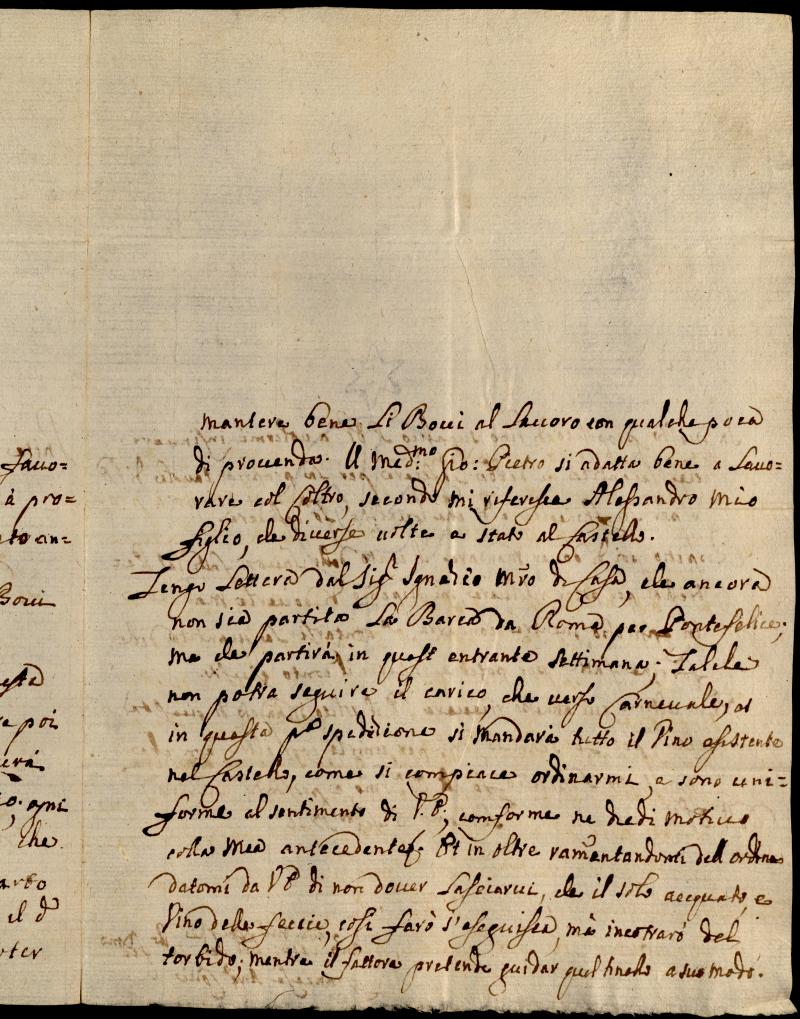 favo=
à pro=
ato an=
Bovi
esta
re poi
cerà
o, ogni
che
arto
il d.º
oter
mantere bene Li Bovi al Lavoro con qualche poca
di provenda. Il Med.mo Gio: Pietro si adatta bene a Lavo=
rare col Coltro, secondo mi riferesce Alessandro mio
figlio, che diverse volte e stato al Castello.
Tengo Lettera dal Sig.r Ignazio Mro di Casa, che ancora
non sia partita La Barca da Roma per Pontefelice;
ma che partirà in quest entrante settimana; Talche
non potra seguire il carico, che verso Carnevale, et
in questa p.a spedizione si mandarà tutto il Vino esistente
nel Castello, come si compiace ordinarmi, e sono uni=
forme al sentimento di V.P.; comforme ne diedi motivo
colla mia antecedente; Et in oltre ramentandomi dell ordine
datomi da VP di non dover Lasciarvi, che il solo acquato, e
Vino delle feccie, così farò s'eseguisca, mà incotrarò del
torbido; mentre il fattore pretende guidar quel tinello a suo modo.